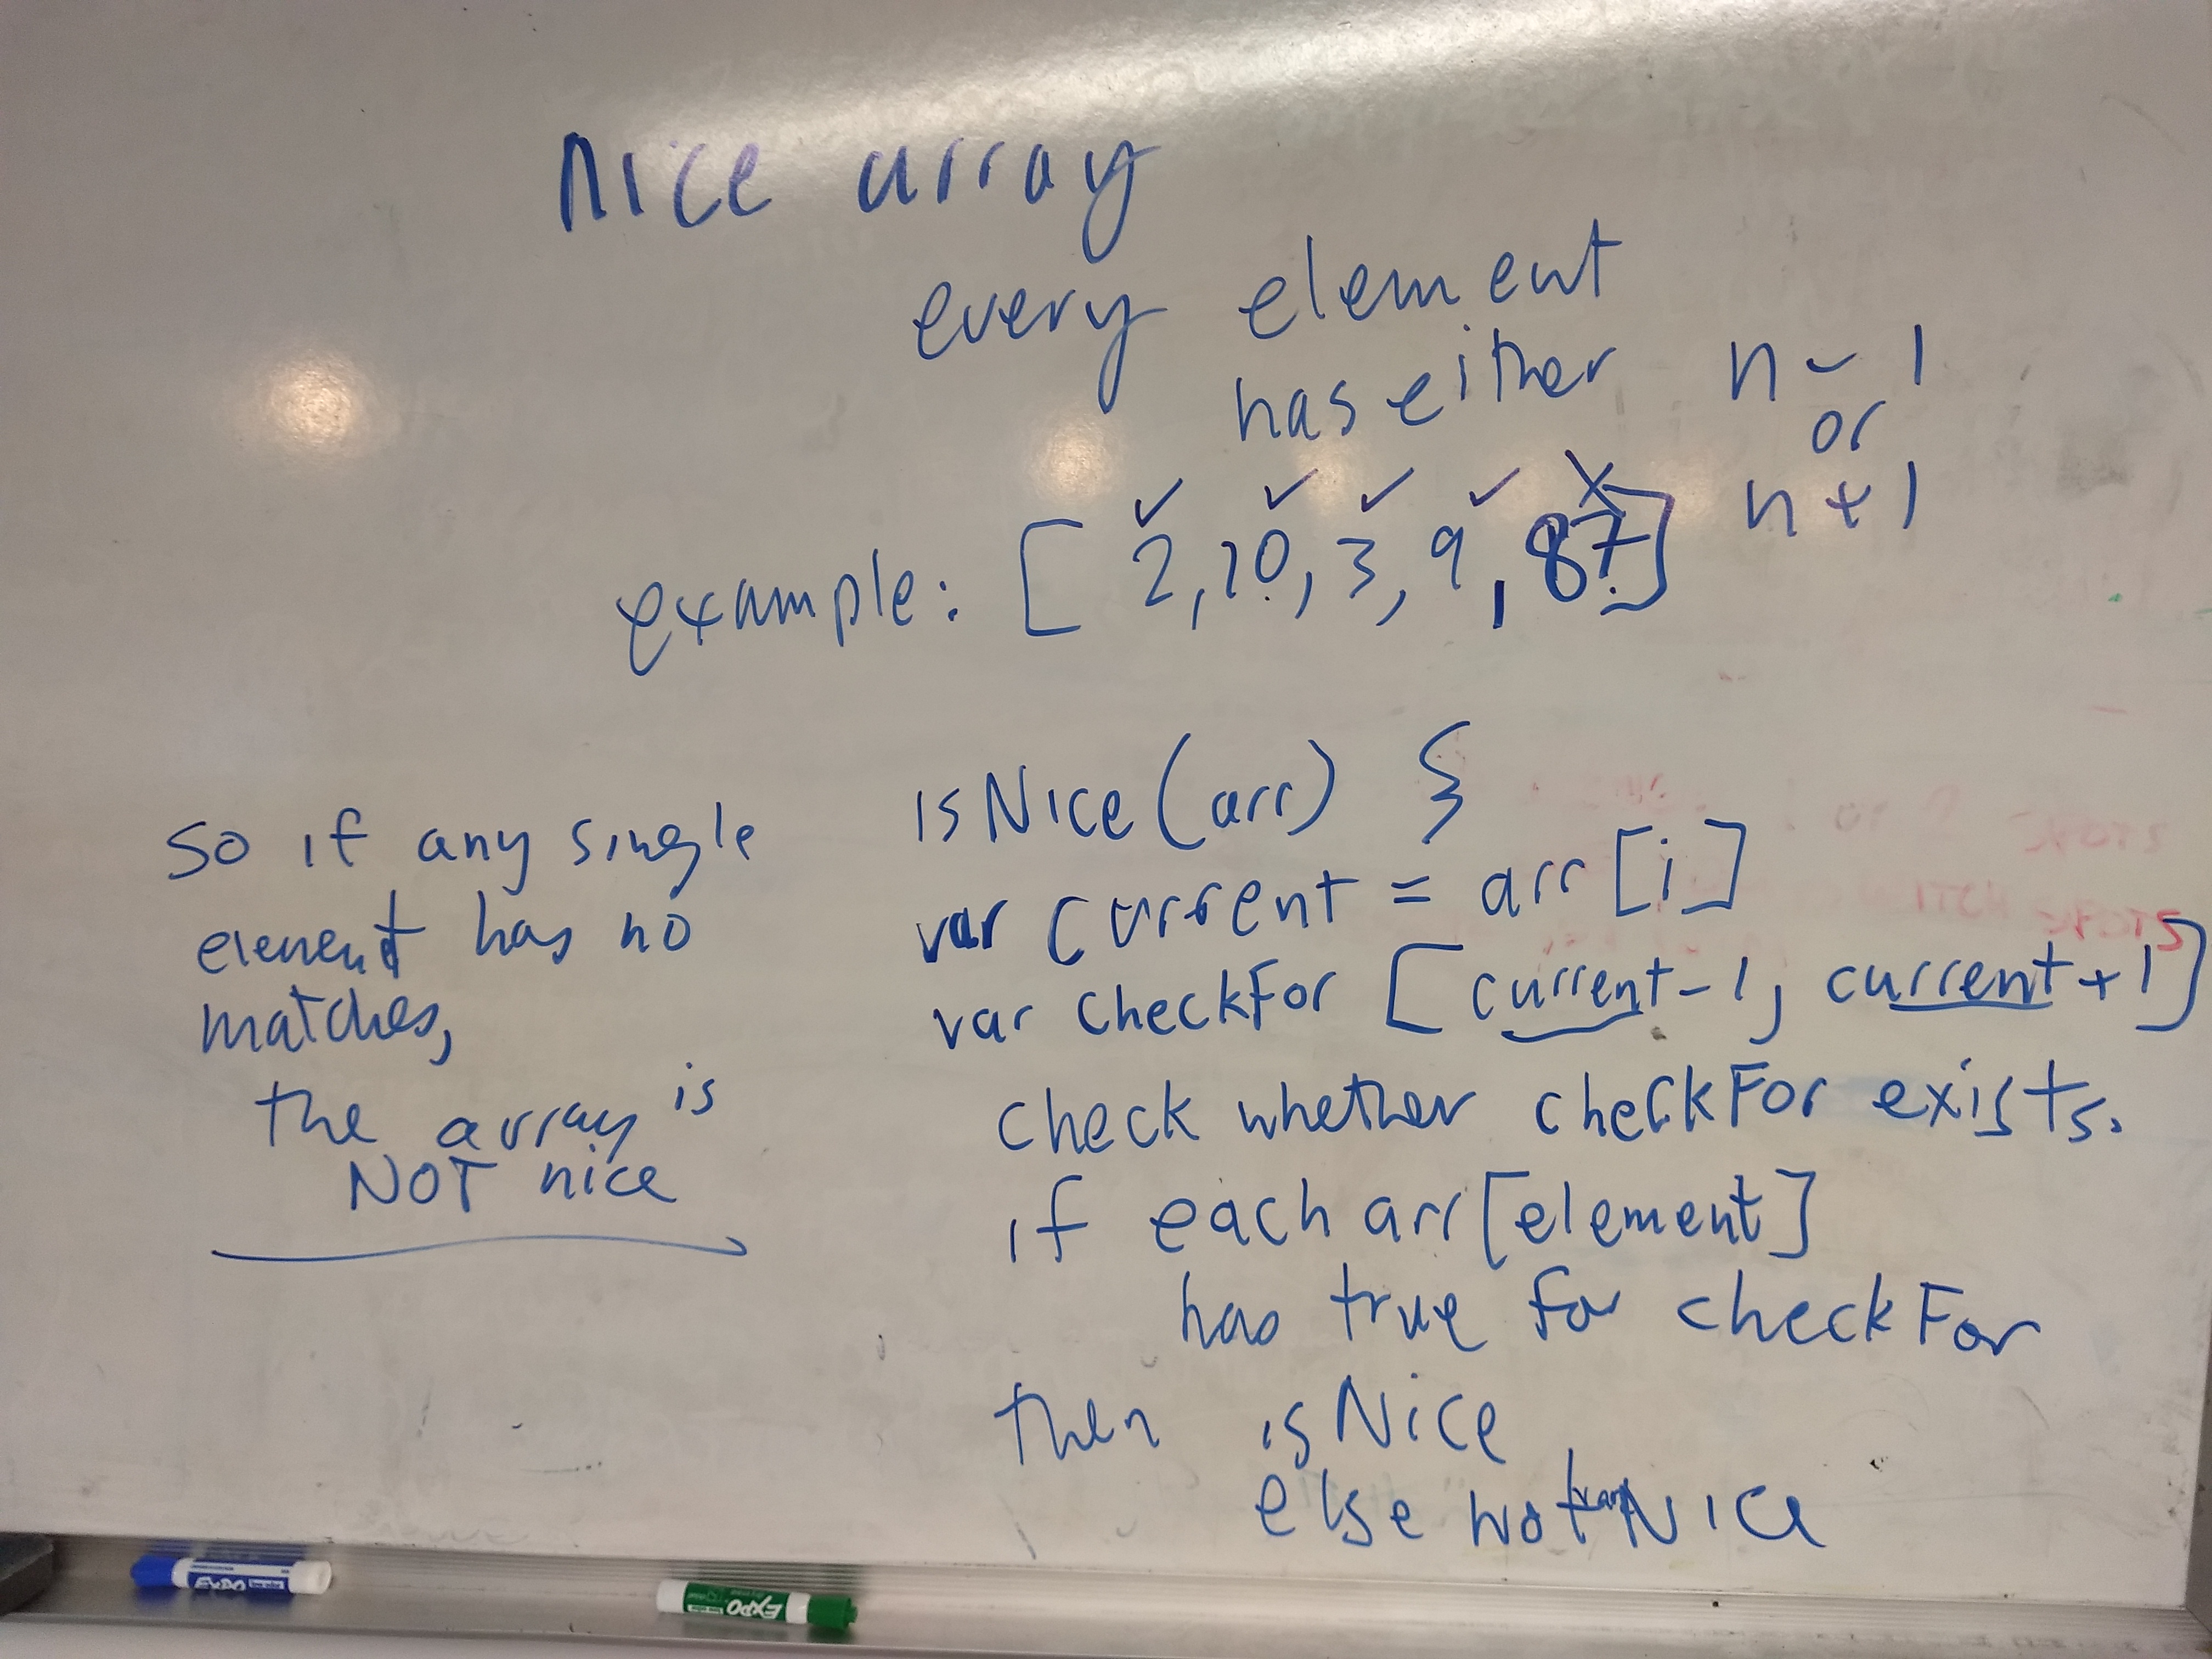 nice array
every element
has either n - 1
or
n + 1
✓ ✓ ✓ ✓ X
example: [ 2, 10, 3, 9, 87 ]
so if any single
element has no
matches,
the array is
NOT nice
isNice (arr) {
var current = arr [i]
var checkFor [current-1, current+1]
check whether checkFor exists.
if each arr[element]
has true for checkFor
then isNice
else not Nice
EXPO
EXPO